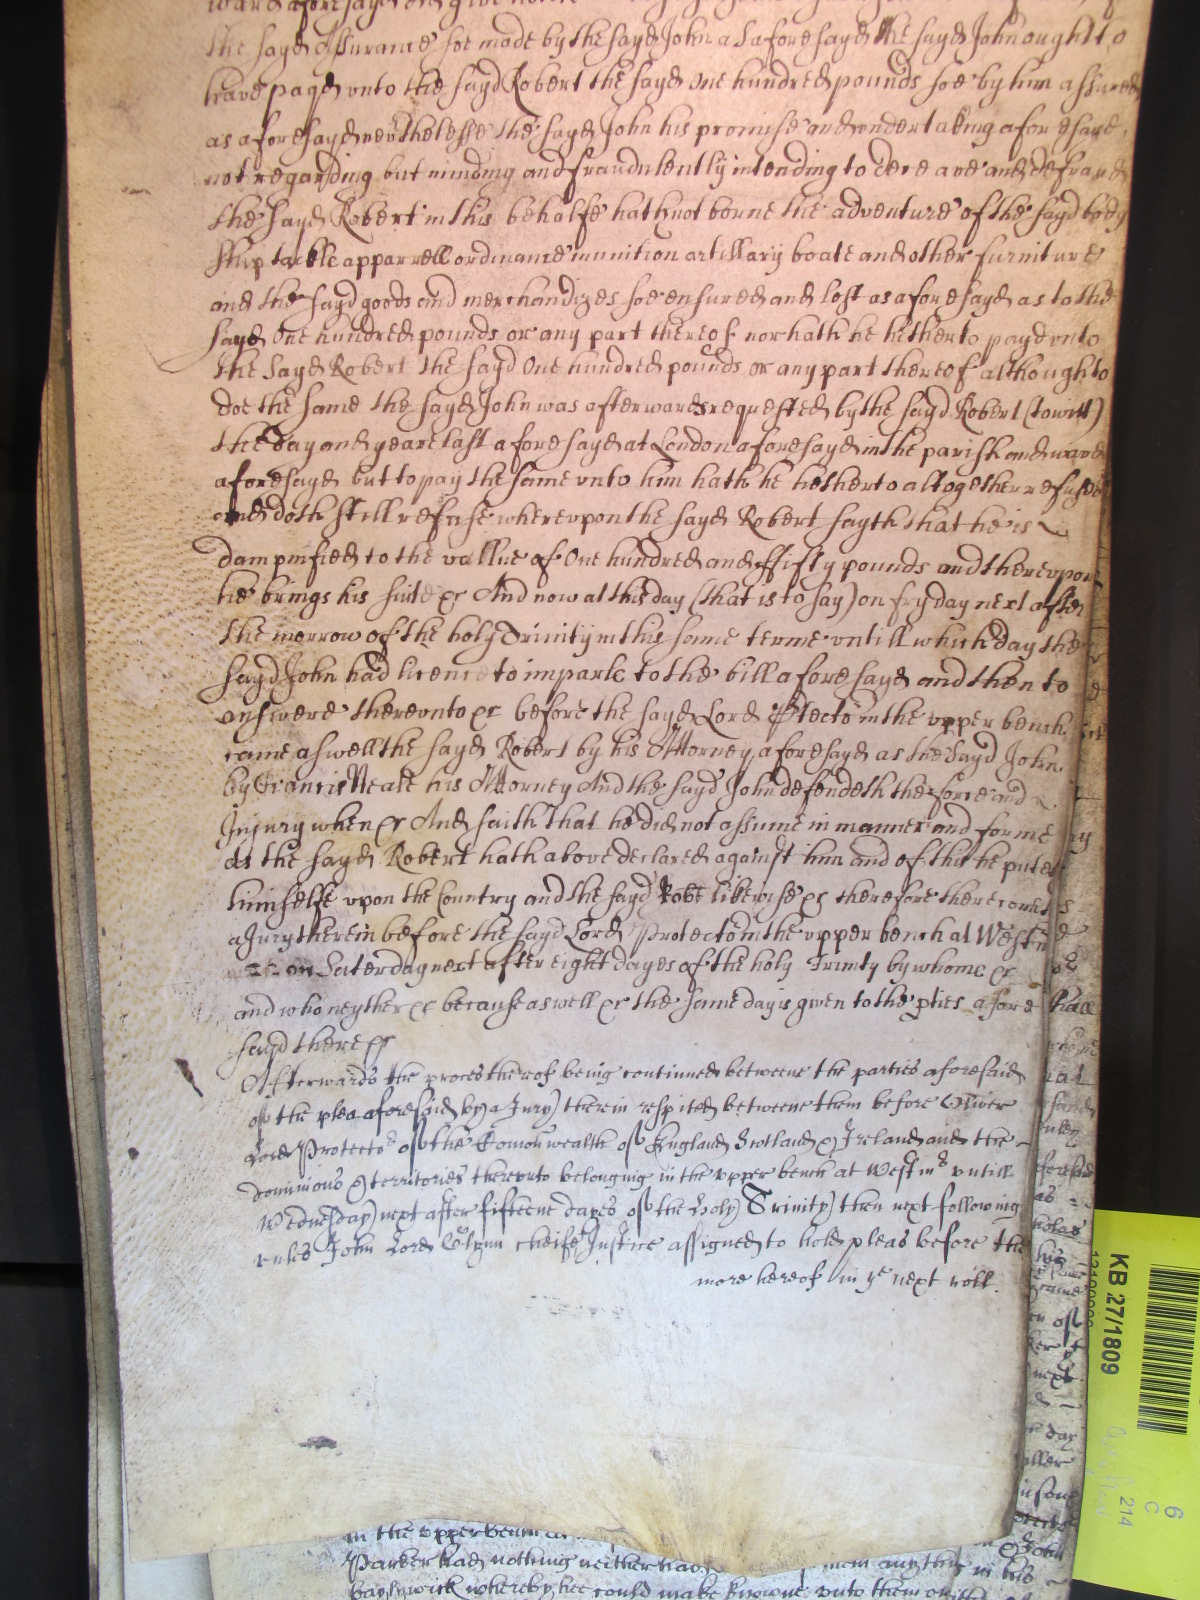 the sayd Assurance soe made by the sayd John as aforesayd the sayd John ought to
have payd vnto the sayd Robert the sayd One hundred pounds soe by him assured
as aforesayd nevthelesse the sayd John his promise and vndertaking aforesayd
not regarding but minding and fraudulently intending to deceave and defraud
the sayd Robert in this behalfe hath not borne the adventure of the sayd body
Shipp tackle apparrell ordinance munition artillary boate and other furniture
and the sayd goods and merchandizes soe ensured and lost as aforesayd as to the
sayd One hundred pounds or any part thereof nor hath he hitherto payd vnto
the sayd Robert the sayd One hundred pounds or any part thereof although to
doe the same the sayd John was afterwards requested by the sayd Robert (to witt)
the day and yeare last aforesayd at London aforesayd in the parish and ward
aforesayd but to pay the same vnto him hath he hitherto altogether refused
and doth still refuse wherevpon the sayd Robert sayth that he is
dampnified to the vallue of One hundred and ffifty pounds and therevpon
he brings his suite &c And now at this day (that is to say) on fryday next after
the morrow of the holy Trinity in this same terme vntill which day the
sayd John had licence to imparle to the bill aforesayd and then to
answere therevnto &c before the sayd Lord Ptector in the vpper bench
came aswell the sayd Robert by his Attorney aforesayd as the sayd John
by Francis Neale his Attorney And the sayd John defendeth the force and
Injury when &c And saith that he did not assume in manner and forme
as the sayd Robert hath above declared against him and of this he putes
himselfe vpon the Country and the sayd Robt likewise &c therefore there comes
a Jury therein before the sayd Lord Protector in the vpper bench at Westm
on Saterday next after eight dayes of the holy Trinity by whome &c
and who neyther &c because aswell &c the same day is given to the pties afore
sayd there &c
Afterwards the proces thereof being continued betweene the parties aforesaid
of the plea aforesaid by a Jury therein respited betweene them before Oliver
Lord Protector of the Comonwealth of England Scotland & Ireland and the
dominions & territories therevnto belonging in the vpper bench at Westmr vntill
Wednesday next after fifteene dayes of the Holy Trinity then next following
vnles John Lord Glynn cheife Justice assigned to hold pleas before the
more hereof in ye next roll.
in the vpper bench
Parker had nothing neither had any thing in his
baylywick whereby hee could make knowne vnto them
KB 27/1809
214
6
C